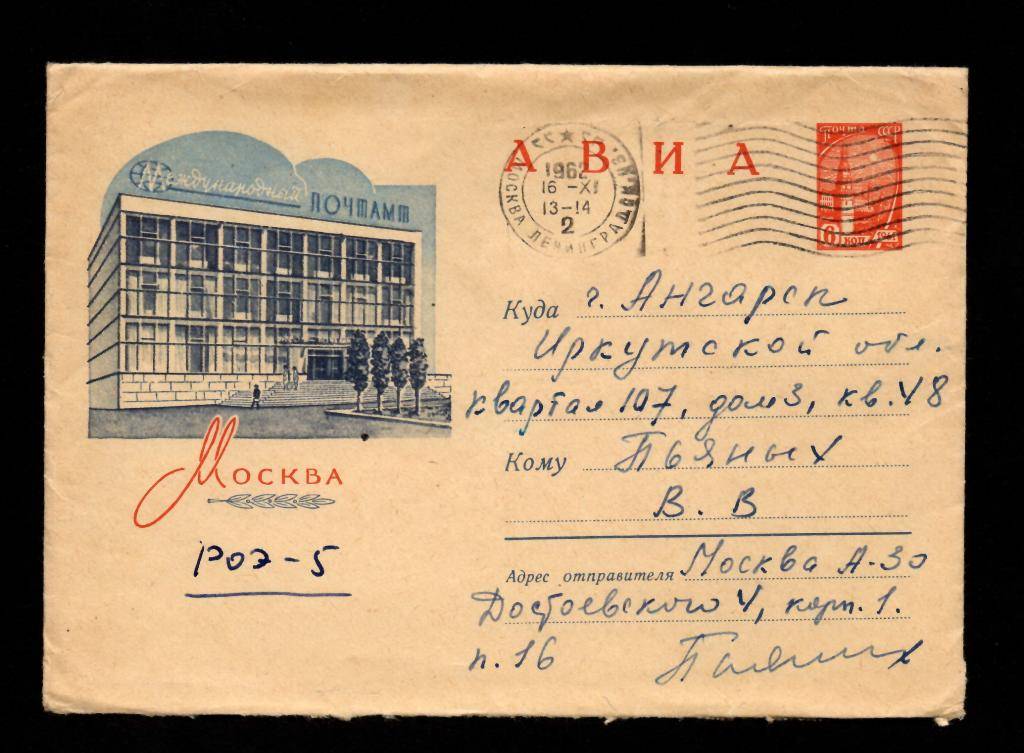 Международный
ПОЧТАМТ
МОСКВА
РОЭ-5
АВИА
МОСКВА ЛЕНИНГРАДСК.
1962
16 -XI
13-14
2
ПОЧТА СССР
6 КОП. 1961
Куда г. Ангарск
Иркутской обл.
квартал 107, дом 3, кв. 48
Кому Пьяных
В. В
Адрес отправителя Москва А-30
Достоевского 4, корп. 1.
п. 16 Пьяных